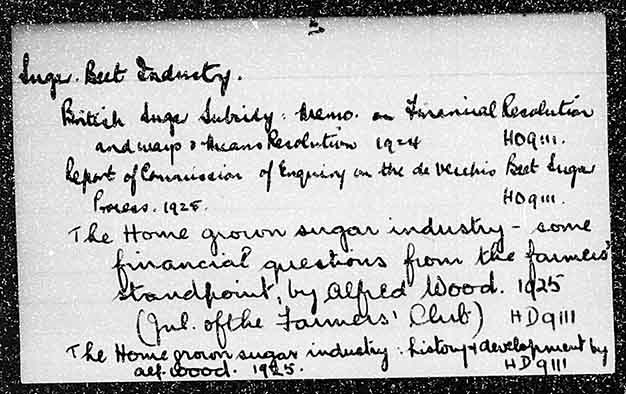 Sugar Beet Industry.
British Sugar Subsidy: Memo. on Financial Resolution
and ways & Means Resolution 1924 HD9111.
Report of Commission of Enquiry on the de Vecchis Beet Sugar
Process. 1925. HD9111.
The Home grown sugar industry - some
financial questions from the farmers'
standpoint, by Alfred Wood. 1925
(Jnl. of the Farmers' Club) HD9111
The Home grown sugar industry: history & development by
Alf. Wood. 1925. HD9111